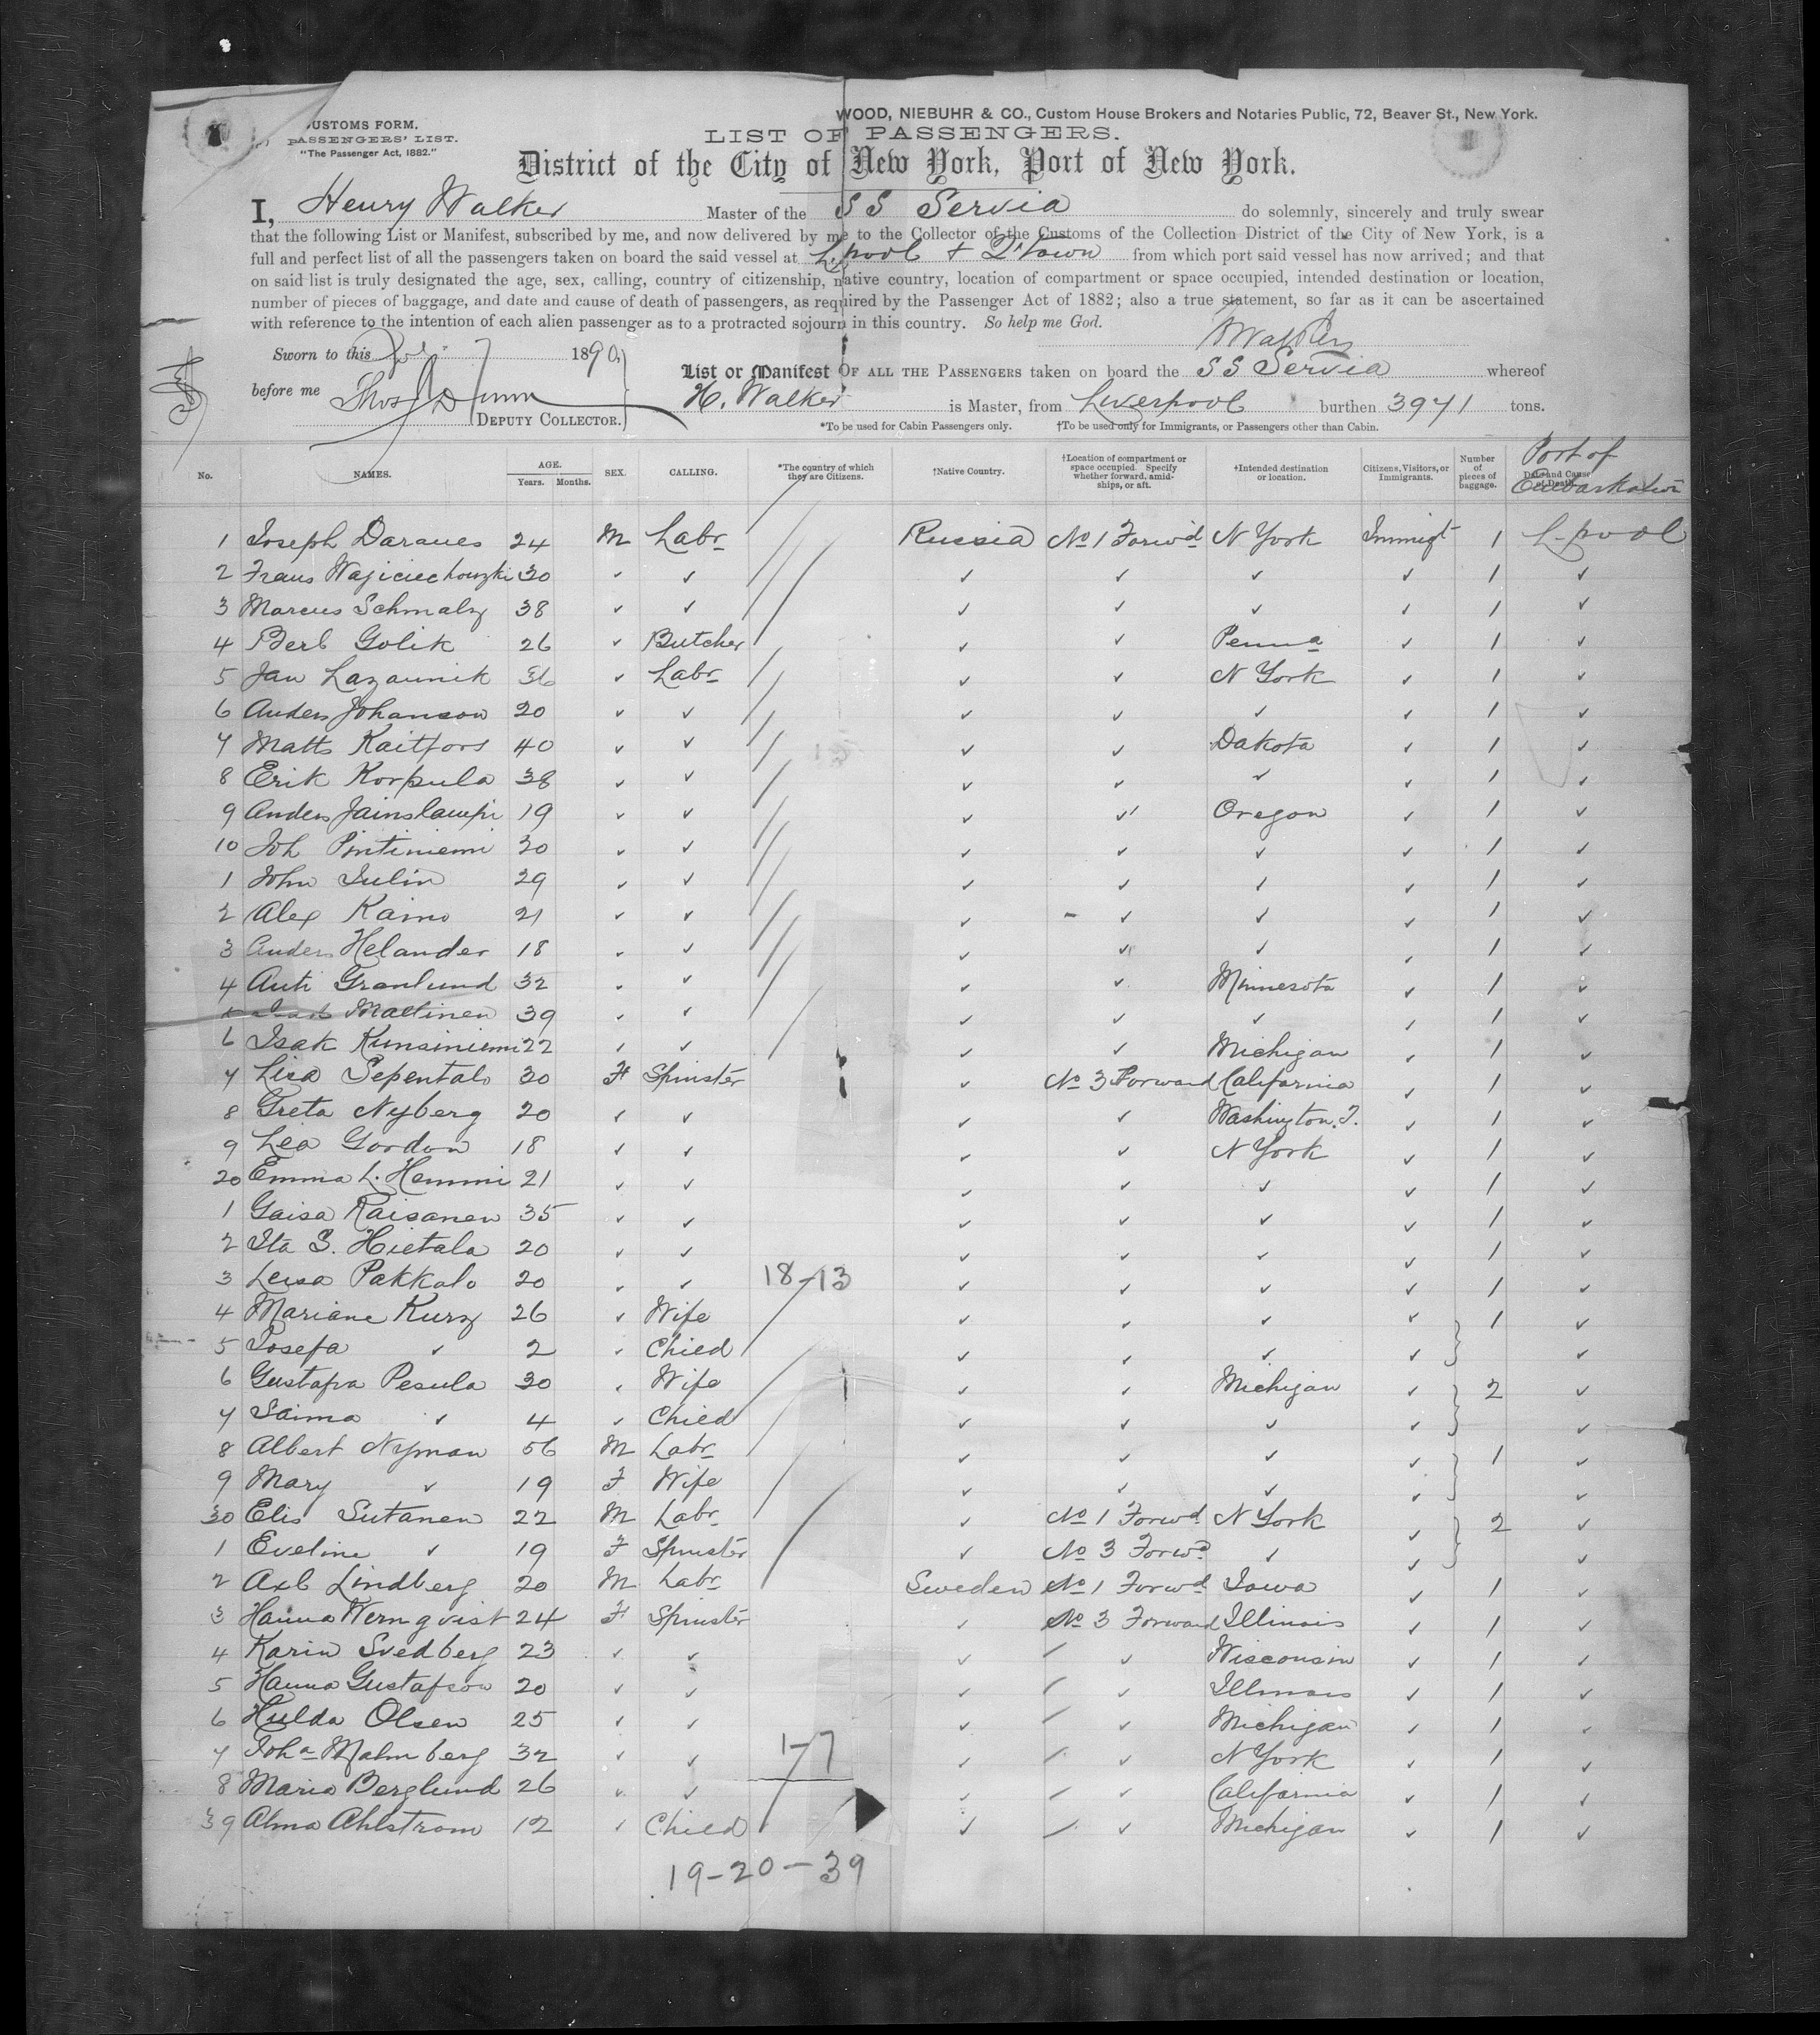 CUSTOMS FORM.
PASSENGERS' LIST.
"The Passenger Act, 1882."
WOOD, NIEBUHR & CO., Custom House Brokers and Notaries Public, 72, Beaver St., New York.
LIST OF PASSENGERS.
District of the City of New York, Port of New York.
I, Henry Walker Master of the SS Servia do solemnly, sincerely and truly swear
that the following List or Manifest, subscribed by me, and now delivered by me to the Collector of the Customs of the Collection District of the City of New York, is a
full and perfect list of all the passengers taken on board the said vessel at L'pool + Q'town from which port said vessel has now arrived; and that
on said list is truly designated the age, sex, calling, country of citizenship, native country, location of compartment or space occupied, intended destination or location,
number of pieces of baggage, and date and cause of death of passengers, as required by the Passenger Act of 1882; also a true statement, so far as it can be ascertained
with reference to the intention of each alien passenger as to a protracted sojourn in this country. So help me God.
HWalker
Sworn to this 7 1890,
before me Thos Dunn
DEPUTY COLLECTOR.
List or Manifest OF ALL THE PASSENGERS taken on board the SS Servia whereof
H. Walker is Master, from Liverpool burthen 3971 tons.
*To be used for Cabin Passengers only. †To be used only for Immigrants, or Passengers other than Cabin.
No. NAMES. AGE. Years. Months. SEX. CALLING. *The country of which they are Citizens. †Native Country. †Location of compartment or space occupied. Specify whether forward, amidships, or aft. †Intended destination or location. Citizens, Visitors, or Immigrants. Number of pieces of baggage. Date and Cause of Death. Port of Embarkation
1 Joseph Daraues 24 M Labr Russia No 1 Forwd N York Immigt 1 L-pool
2 Frans Wajiciechowzki 30 ✓ ✓ ✓ ✓ ✓ ✓ 1 ✓
3 Marcus Schmalz 38 ✓ ✓ ✓ ✓ ✓ ✓ 1 ✓
4 Berl Golik 26 ✓ Butcher ✓ ✓ Penna ✓ 1 ✓
5 Jan Lazaunik 36 ✓ Labr ✓ ✓ N York ✓ 1 ✓
6 Anders Johanson 20 ✓ ✓ ✓ ✓ ✓ ✓ 1 ✓
7 Matts Kaitfors 40 ✓ ✓ ✓ ✓ Dakota ✓ 1 ✓
8 Erik Korpula 38 ✓ ✓ ✓ ✓ ✓ ✓ 1 ✓
9 Anders Jainslampi 19 ✓ ✓ ✓ ✓ Oregon ✓ 1 ✓
10 Joh Pintiniemi 30 ✓ ✓ ✓ ✓ ✓ ✓ 1 ✓
1 John Julin 29 ✓ ✓ ✓ ✓ ✓ ✓ 1 ✓
2 Alex Kaino 21 ✓ ✓ ✓ ✓ ✓ ✓ 1 ✓
3 Anders Helander 18 ✓ ✓ ✓ ✓ ✓ ✓ 1 ✓
4 Anti Granlund 32 ✓ ✓ ✓ ✓ Minnesota ✓ 1 ✓
Mattinen 39 ✓ ✓ ✓ ✓ ✓ ✓ 1 ✓
6 Isak Kunsiniemi 22 ✓ ✓ ✓ ✓ Michigan ✓ 1 ✓
7 Lisa Sepentalo 30 F Spinster ✓ No 3 Forward California ✓ 1 ✓
8 Greta Nyberg 20 ✓ ✓ ✓ ✓ Washington.T. ✓ 1 ✓
9 Lea Gordon 18 ✓ ✓ ✓ ✓ N York ✓ 1 ✓
20 Emma L. Hemmi 21 ✓ ✓ ✓ ✓ ✓ ✓ 1 ✓
1 Gaisa Raisanen 35 ✓ ✓ ✓ ✓ ✓ ✓ 1 ✓
2 Ita S. Hietala 20 ✓ ✓ ✓ ✓ ✓ ✓ 1 ✓
3 Leisa Pakkalo 20 ✓ ✓ 18-13 ✓ ✓ ✓ ✓ 1 ✓
4 Mariane Kurz 26 ✓ Wife ✓ ✓ ✓ ✓ 1 ✓
5 Josefa ✓ 2 ✓ Child ✓ ✓ ✓ ✓ ✓
6 Gustafva Pesula 30 ✓ Wife ✓ ✓ Michigan ✓ 2 ✓
7 Saima ✓ 4 ✓ Child ✓ ✓ ✓ ✓ ✓
8 Albert Nyman 56 M Labr ✓ ✓ ✓ ✓ 1 ✓
9 Mary ✓ 19 F Wife ✓ ✓ ✓ ✓ ✓
30 Elis Sutanen 22 M Labr ✓ No 1 Forwd N York ✓ 2 ✓
1 Eveline ✓ 19 F Spinster ✓ No 3 Forwd ✓ ✓ ✓
2 Axl Lindberg 20 M Labr Sweden No 1 Forwd Iowa ✓ 1 ✓
3 Hanna Wernqvist 24 F Spinster ✓ No 3 Forward Illinois ✓ 1 ✓
4 Karin Svedberg 23 ✓ ✓ ✓ ✓ Wisconsin ✓ 1 ✓
5 Hanna Gustafson 20 ✓ ✓ ✓ ✓ Illinois ✓ 1 ✓
6 Hulda Olsen 25 ✓ ✓ ✓ ✓ Michigan ✓ 1 ✓
7 Joha Malmberg 32 ✓ ✓ 1-7 ✓ ✓ N York ✓ 1 ✓
8 Maria Berglund 26 ✓ ✓ ✓ ✓ California ✓ 1 ✓
39 Alma Ahlstrom 12 ✓ Child ✓ ✓ Michigan ✓ 1 ✓
19-20-39